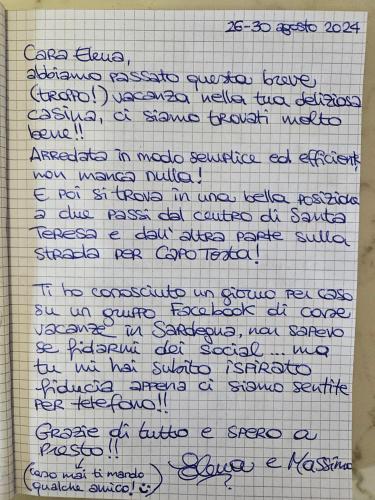 26-30 agosto 2024
CARA Elena,
abbiamo passato questa breve
(TROPPO!) vacanza nella tua deliziosa
casina, ci siamo trovati molto
bene!!
Arredata in modo semplice ed efficient,
non manca nulla!
E poi si trova in una bella posizione
a due passi dal centro di Santa
Teresa e dall'altra parte sulla
strada per Capo Testa!
Ti ho conosciuto un giorno per caso
su un gruppo Facebook di case
vacanze in Sardegna, non sapevo
se fidarmi dei social... ma
tu mi hai subito ISPIRATO
fiducia appena ci siamo sentite
per telefono!!
Grazie di tutto e spero a
presto!!
(caso mai ti mando
qualche amico!)
Elena e Massimo